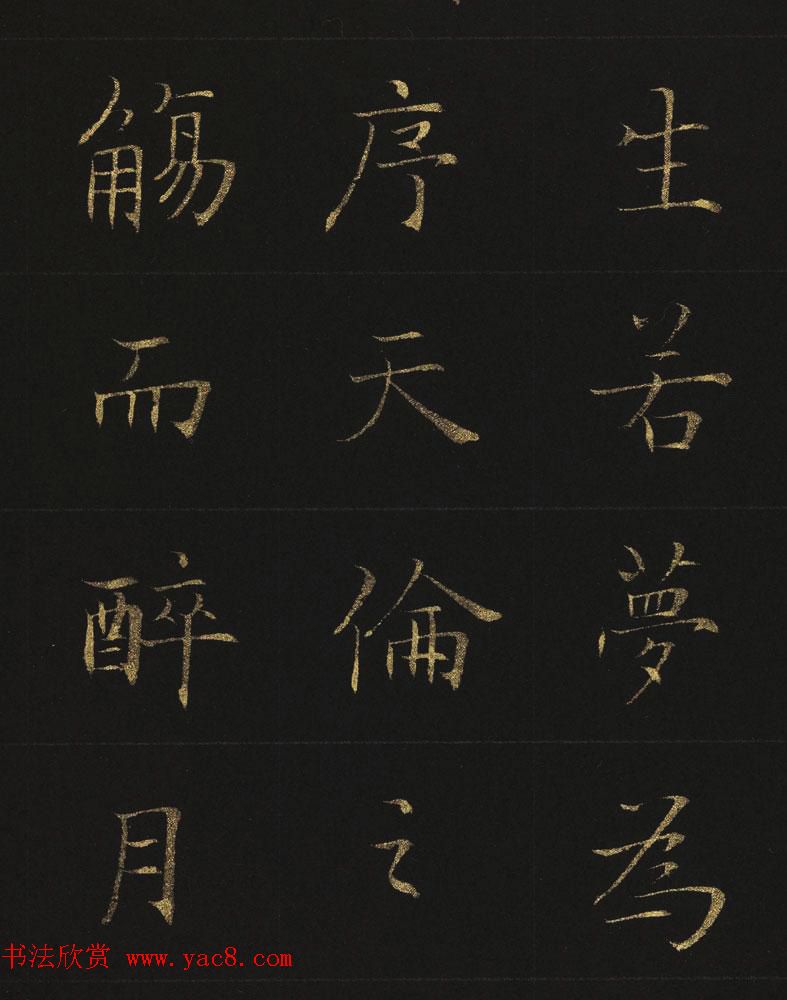 生若夢為
序天倫之
觴而醉月
书法欣赏 www.yac8.com